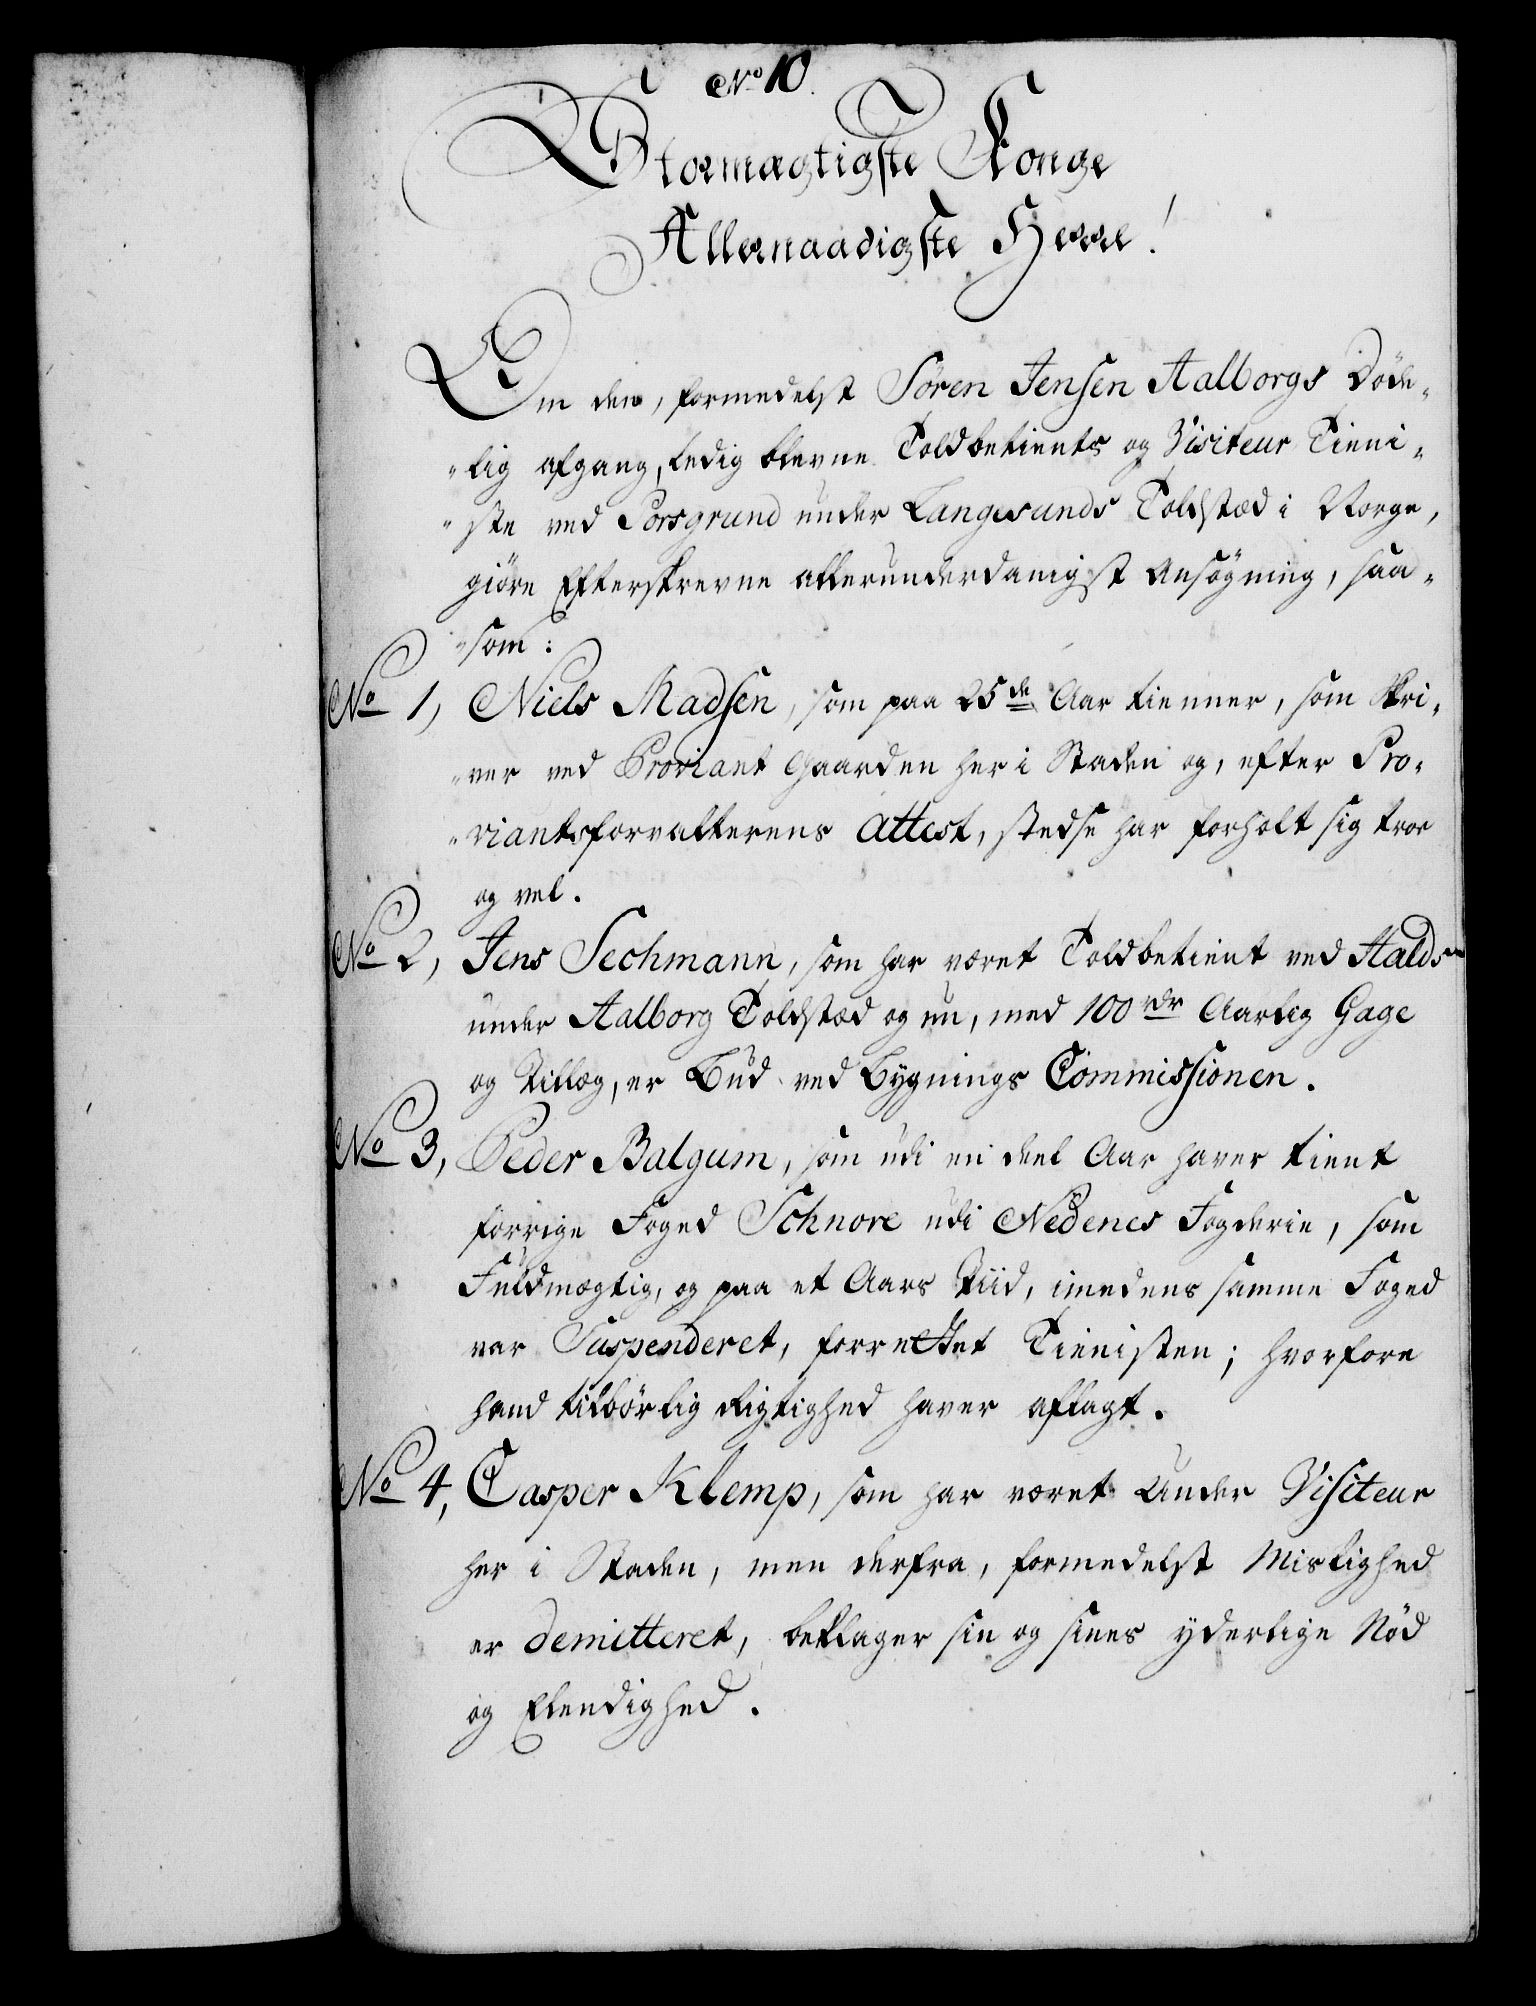 No 10.
Stormægtigste Konge
Allernaadigste Herre!
Om den, formedelst Sören Jensen Aalborgs Döde-
-lig afgang, ledig blevne Toldbetients og Visiteur Tieni-
-ste ved Porsgrund under Langesunds Toldstæd i Norge,
giöre Efterskrevne allerunderdanigst Ansögning, saa-
-som:
No 1, Niels Madsen, som paa 25de Aar tienner, som Skri-
-ver ved Proviant Gaarden her i Staden og, efter Pro-
-viantsforvalterens Attest, stedse har forholt sig troe
og vel.
No 2, Jens Sechmann, som har været Toldbetient ved Hals
under Aalborg Toldstæd og nu, med 100 rdr Aarlig Gage
og Tillæg, er Bud ved Bygnings Commissionen.
No 3, Peder Balgum, som udi en deel Aar haver tient
forrige Foged Schnore udi Nedenes Fogderie, som
Fuldmægtig, og paa et Aars Tiid, imedens samme Foged
var Suspenderet, forrettet Tienisten; hvorfore
hand tilbörlig Rigtighed haver aflagt.
No 4, Casper Klemp, som har været Under Visiteur
her i Staden, men derfra, formedelst Mislighed
er demitteret, beklager sin og sines yderlige Nöd
og Elendighed.